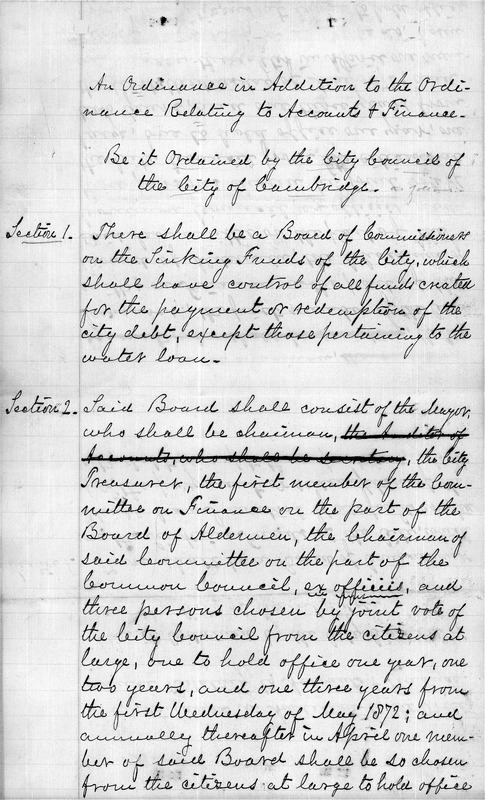 An Ordinance in Addition to the Ordi-
nance Relating to Accounts & Finance.
Be it Ordained by the City Council of
the City of Cambridge.
Section 1. There shall be a Board of Commissioners
on the Sinking Funds of the City, which
shall have control of all funds created
for the payment or redemption of the
city debt, except those pertaining to the
water loan.
Section 2. Said Board shall consist of the Mayor,
who shall be chairman, the Auditor of
Accounts, who shall be secretary, the City
Treasurer, the first member of the Com-
mittee on Finance on the part of the
Board of Aldermen, the Chairman of
said Committee on the part of the
Common Council, ex officiis, and
three persons chosen by joint vote of
the City Council from the citizens at
large, one to hold office one year, one
two years, and one three years from
the first Wednesday of May 1872; and
annually thereafter in April one mem-
ber of said Board shall be so chosen
from the citizens at large to hold office